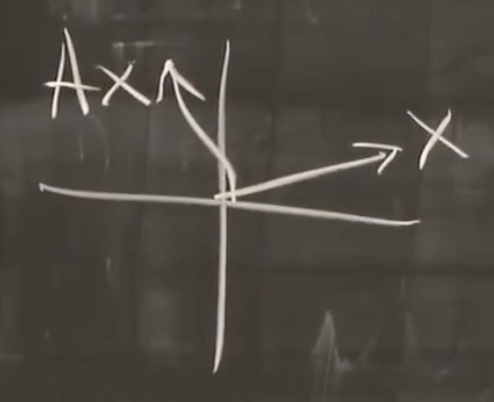 Ax
x